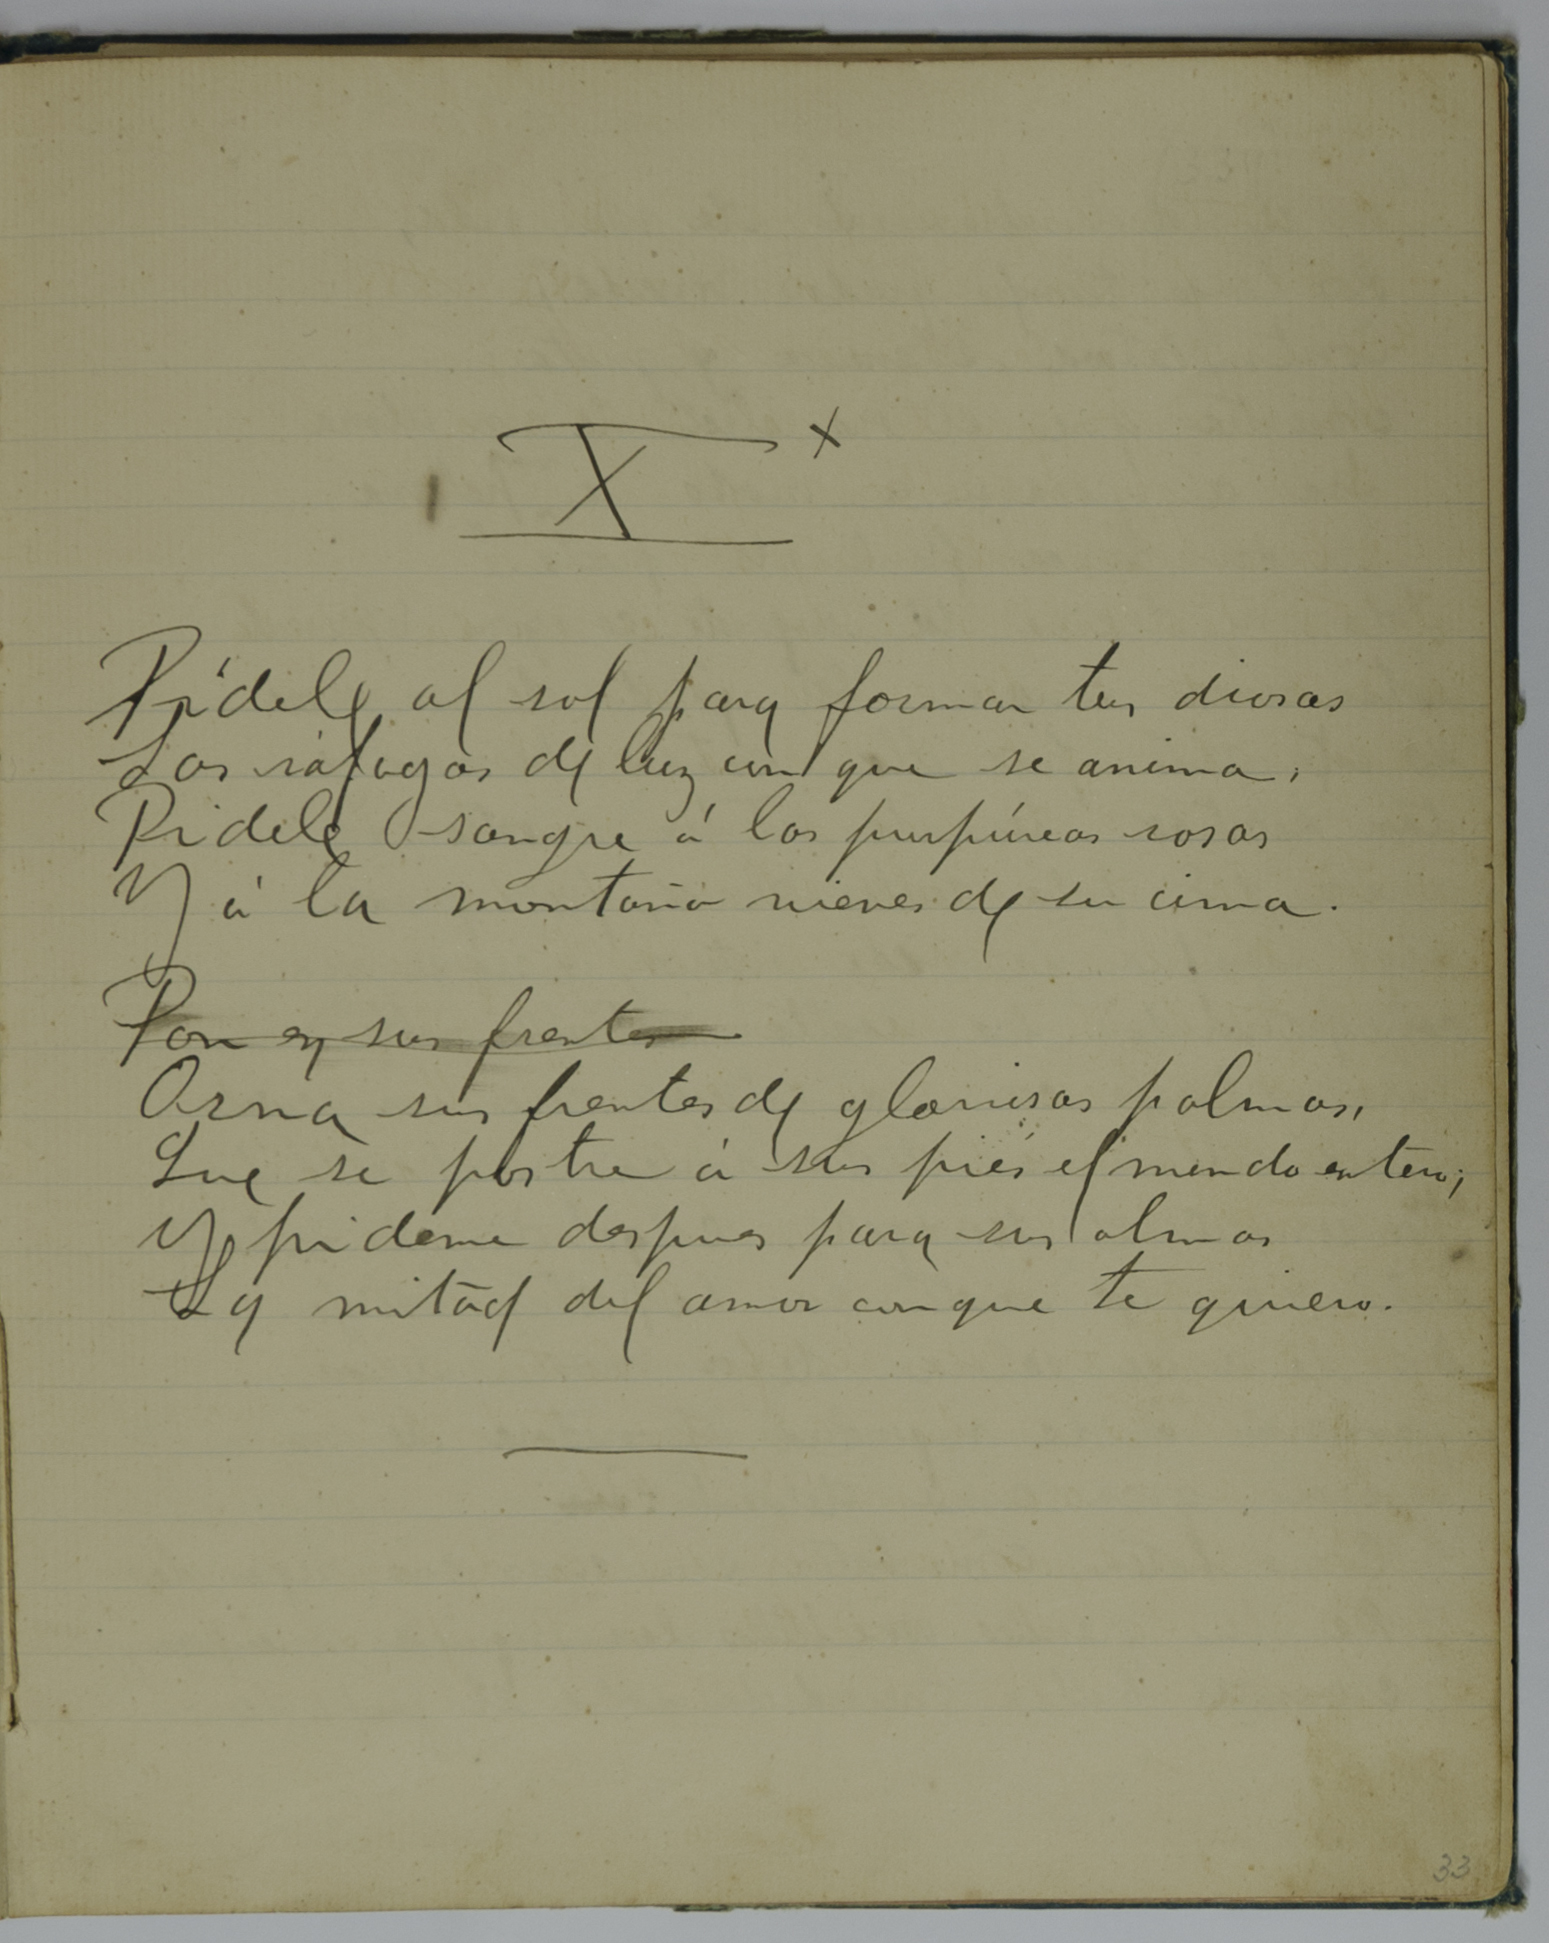 X x
Pídele al sol para formar tus diosas
Las ráfagas de luz con que se anima,
Pidele sangre á las purpúreas rosas
Y á la montaña nieves de su cima.
Pon en sus frentes
Orna sus frentes de gloriosas palmas,
Que se postre á sus piés el mundo entero;
Y pideme despues para sus almas
La mitad del amor con que te quiero.
33